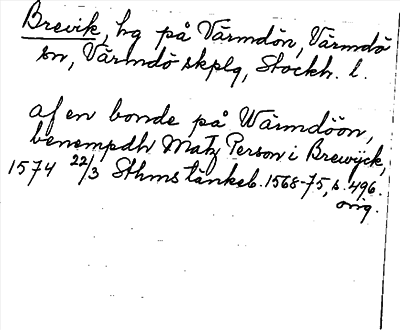 Brevik, hg på Värmdön, Värmdö
sn, Värmdö skplg, Stockh. l.
af en bonde på Wärmdöön,
benempdh Matz Person i Brewijck,
1574 22/3 Sthms tänkeb. 1568-75, s. 496.
orig.